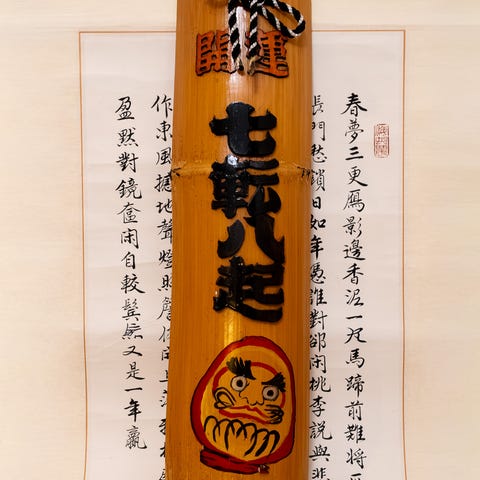 開運
七転八起
春夢三更鴈影邊香泥一尺馬蹄前難將
長門愁鎖日如年憑誰對郤閑桃李說與悲
作東風撼地聲燈照
盈默對鏡奩閑自較鬢絲又是一年贏